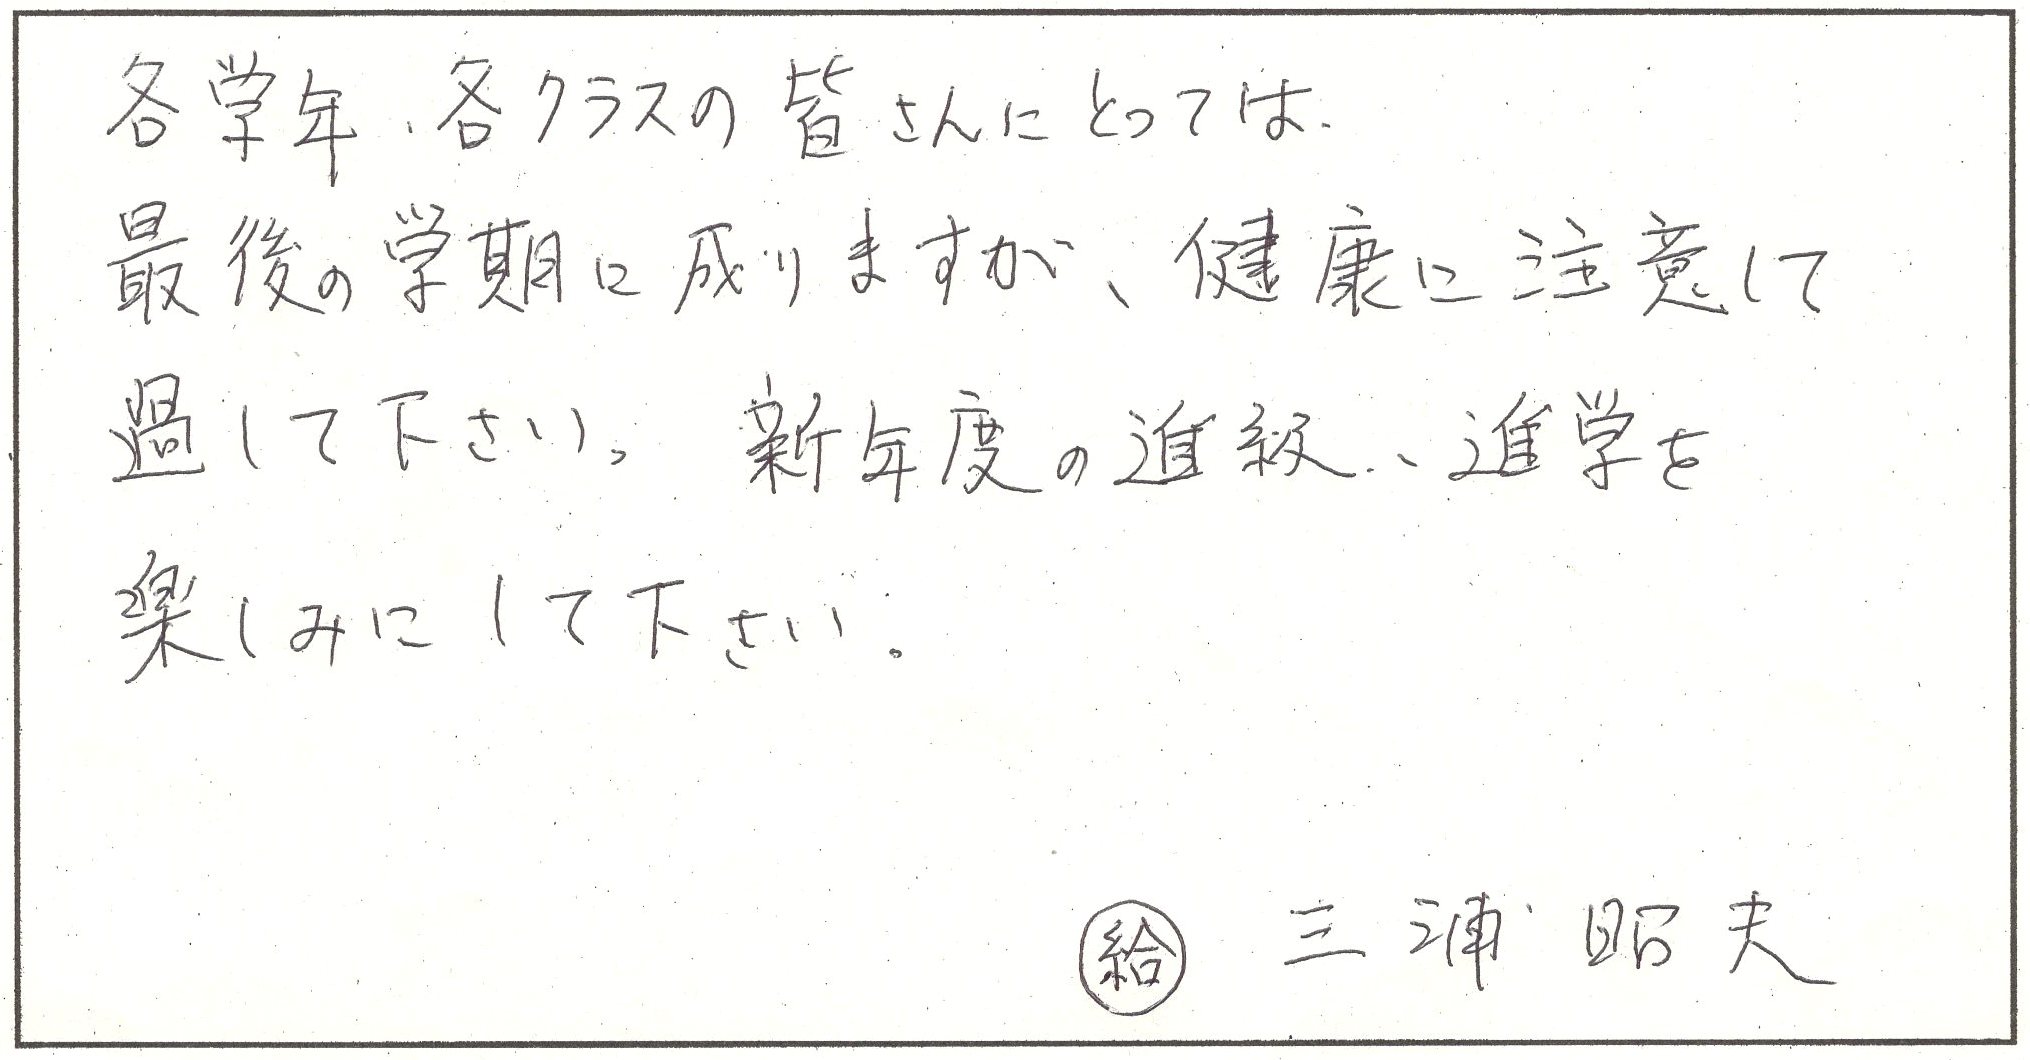 各学年、各クラスの皆さんにとっては、
最後の学期に成りますが、健康に注意して
過して下さい。新年度の進級、進学を
楽しみにして下さい。
㊒給 三浦昭夫